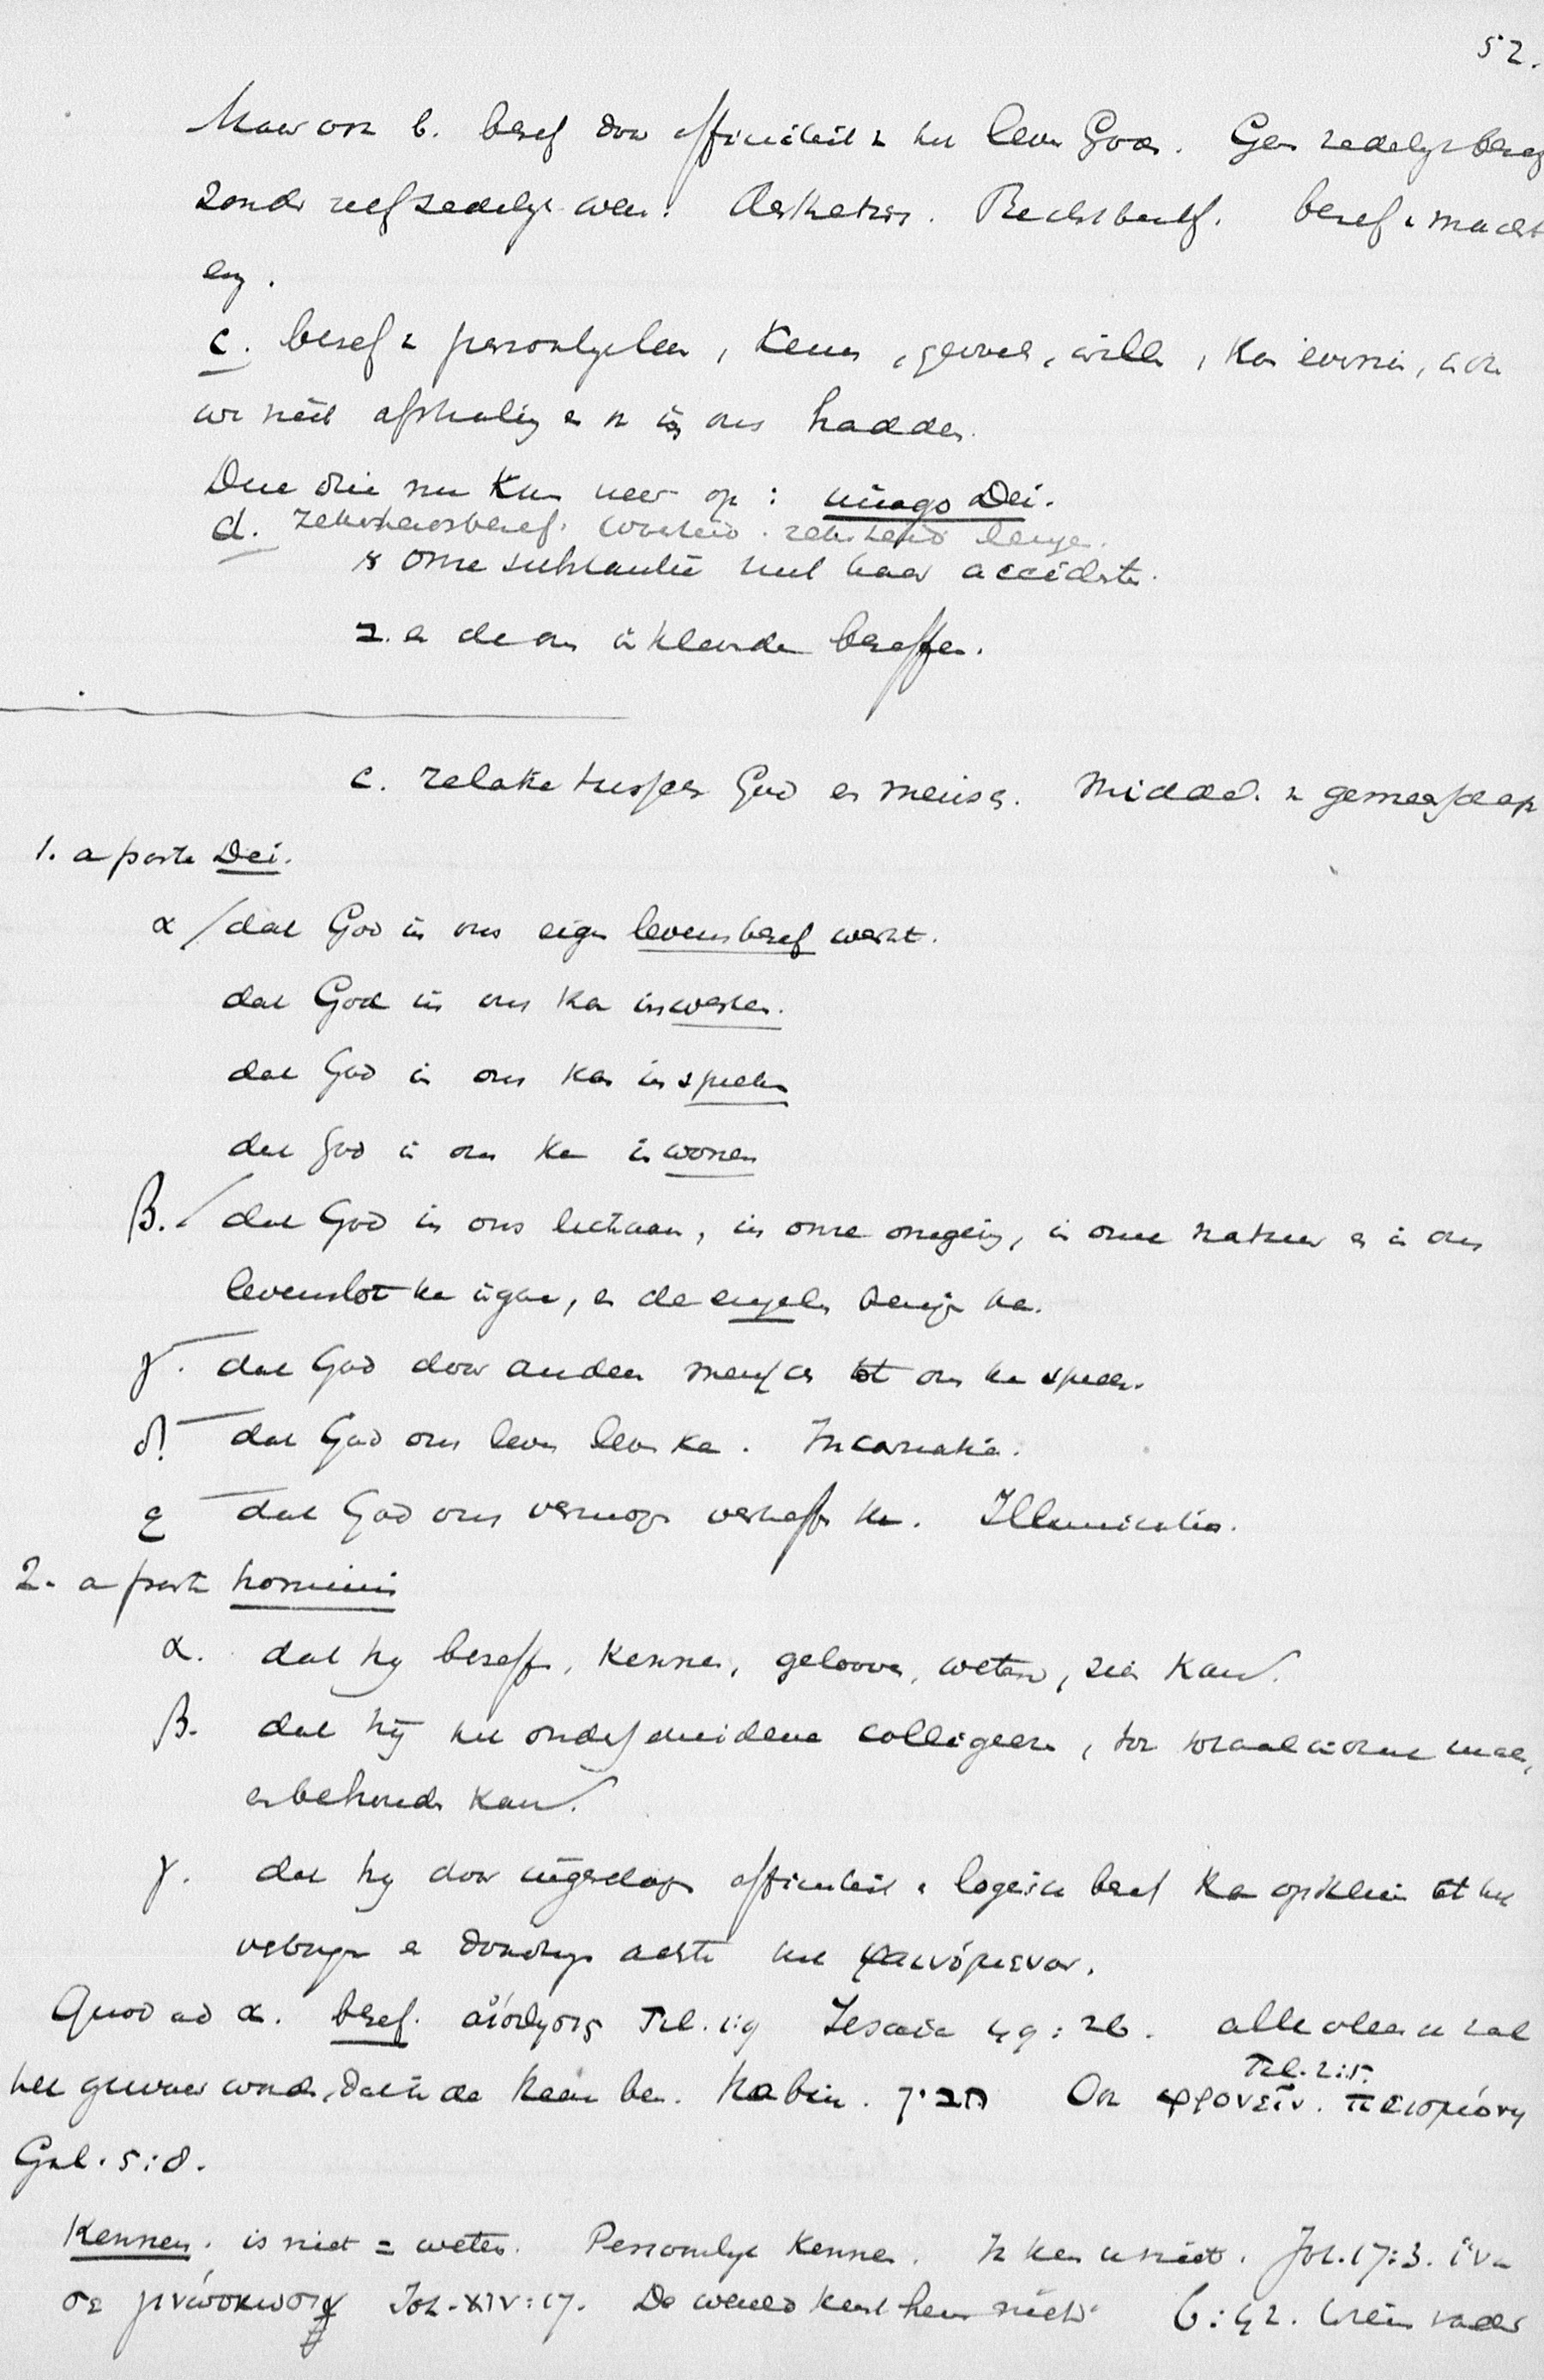 52.
Maar ook b. besef door affiniteit v. het leven Gods. Geen zedelijk besef
zonder zelf zedelijk wezen. Aesthetisch. Rechtsbesef. besef v. macht
enz.
c. besef v. persoonlijk leven, Kennen, gevoel, willen, Kan evenmin, als
we niet afspiegeling er v. in ons hadden.
Deze drie nu Komen neer op: imago Dei.
d. zekerheidsbesef. waarheid. zekerheid leugen.
א onze substantie met haar accidenten.
ב. en de ons inklevende beseffen.
c. relatie tusschen God en mensch. Middel v. gemeenschap
1. a parte Dei.
α / dat God in ons eigen levensbesef werkt.
dat God in ons Kan inwerken.
dat God in ons Kan inspreken
dat God in ons Kan inwonen
β. / dat God in ons lichaam, in onze omgeving, in onze natuur en in ons
levenslot kan ingaan, en de engelen kan.
γ. dat God door andere menschen tot ons kan spreken.
δ. dat God ons leven leven Kan. Incarnatie.
ε dat God ons vermogen verheffen Kan. Illuminatio.
2. a parte hominis
α. dat hy beseffen, Kennen, gelooven, weten, zien Kan.
β. dat hij het onderscheidene colligeeren, tot maken,
en behouden Kan.
γ. dat hy door ingeschapen affiniteit en logisch besef Kan opklimmen tot het
verborgene en achter het φαινόμενον.
Quod ad α. besef. αἴσθησις Phil. 1:9 Jesaia 49:26. alle vleesch zal
het gewaar worden, dat ik de Heere ben. Habin. הבין Ook φρονεῖν. Phil. 2:5. πεισμόνη
Gal. 5:8.
Kennen. is niet = weten. Persoonlijk Kennen. Ik ken u niet. Joh. 17:3. ἵνα
σε γινώσκωσιν Joh. XIV:17. De wereld kent hem niet. 6:42. Wiens vader